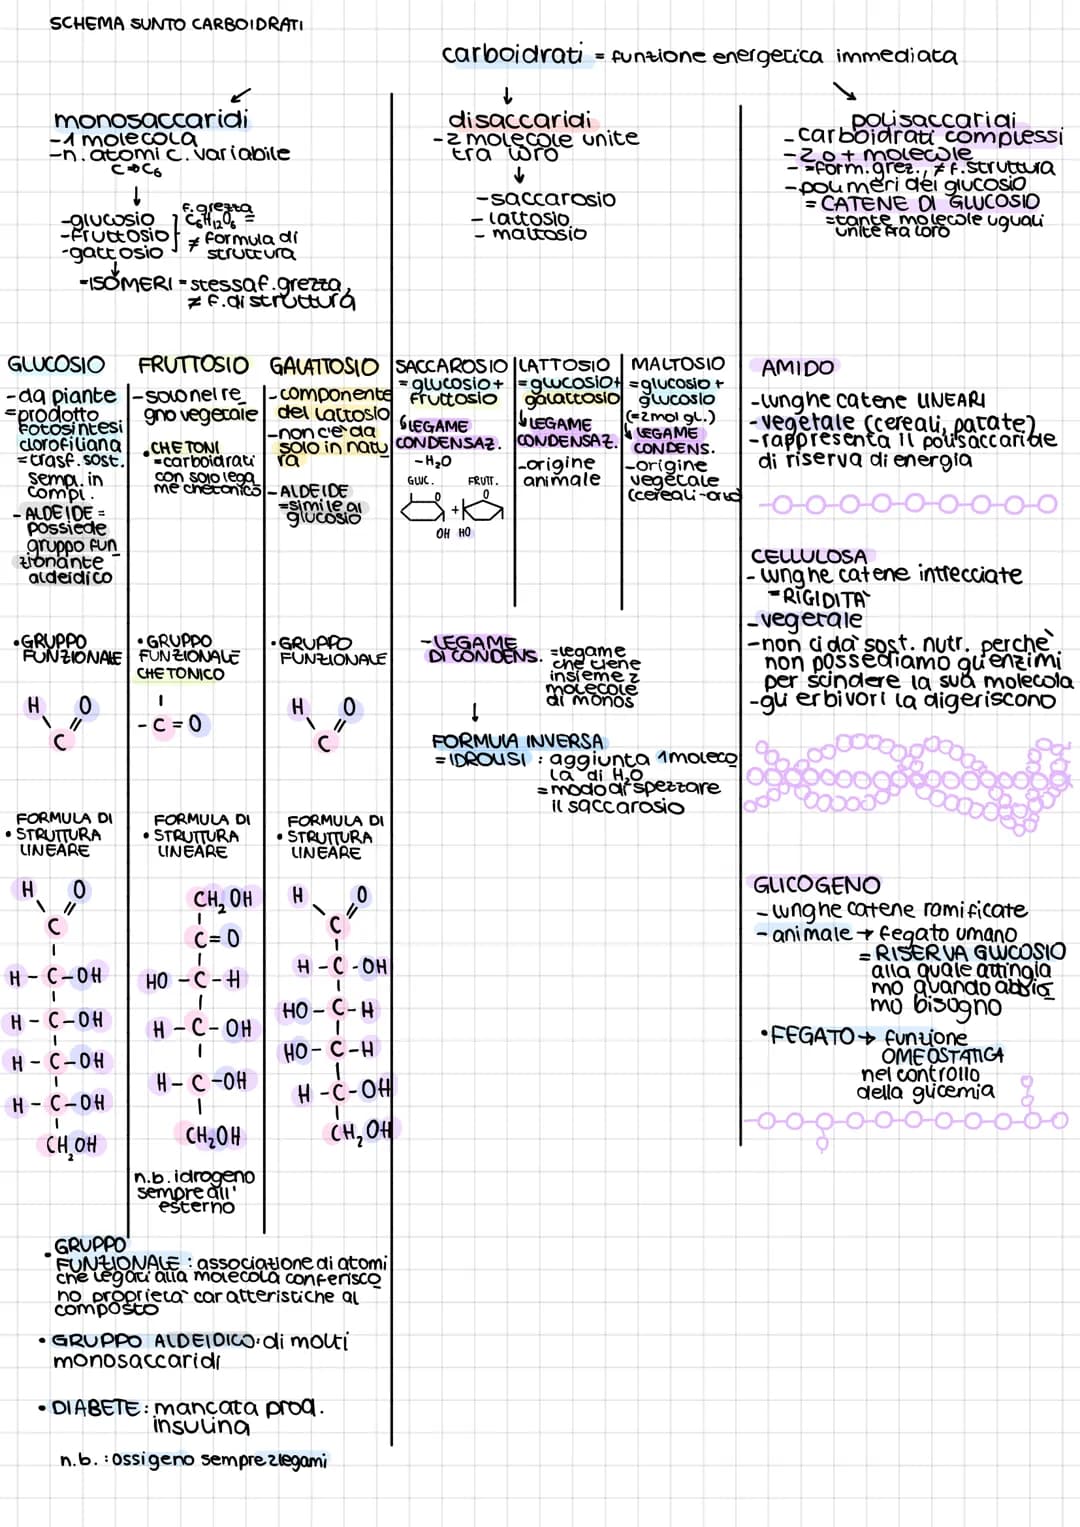 SCHEMA SUNTO CARBOIDRATI
carboidrati = funzione energetica immediata
monosaccaridi
-1 molecola
-n. atomi c. variabile
C → C6
-glucosio
-fruttosio
-gattosio
f. grezza
C6H12O6 =
≠ formula di
struttura
-ISOMERI = stessa f. grezza,
≠ f. di struttura
disaccaridi
-2 molecole unite
tra loro
-saccarosio
- lattosio
- maltosio
polisaccaridi
- carboidrati complessi
- 2 o + molecole
- =form. grez., ≠ f. struttura
- polimeri del glucosio
= CATENE DI GLUCOSIO
=tante molecole uguali
unite fra loro
GLUCOSIO
-da piante
=prodotto
fotosintesi
clorofiliana
=trasf. sost.
sempl. in
compl.
- ALDEIDE =
possiede
gruppo fun
zionante
aldeidico
•GRUPPO
FUNZIONALE
H O
C
FORMULA DI
• STRUTTURA
LINEARE
H O
C
H - C - OH
H - C - OH
H - C - OH
H - C - OH
CH2OH
FRUTTOSIO
-solo nel re
gno vegetale
•CHETONI
=carboidrati
con solo lega
me chetonico
•GRUPPO
FUNZIONALE
CHETONICO
- C = O
FORMULA DI
• STRUTTURA
LINEARE
CH2OH
C = O
HO - C - H
H - C - OH
H - C - OH
CH2OH
n.b. idrogeno
sempre all'
esterno
GALATTOSIO
- componente
del lattosio
-non c'è da
solo in natu
ra
- ALDEIDE
=simile al
glucosio
•GRUPPO
FUNZIONALE
H O
C
FORMULA DI
• STRUTTURA
LINEARE
H O
C
H - C - OH
HO - C - H
HO - C - H
H - C - OH
CH2OH
SACCAROSIO
= glucosio +
fruttosio
LEGAME
CONDENSAZ.
-H2O
GLUC. FRUTT.
O + O
OH HO
LATTOSIO
= glucosio +
galattosio
LEGAME
CONDENSAZ.
-origine
animale
MALTOSIO
=glucosio +
glucosio
(=2 mol gl.)
LEGAME
CONDENS.
-origine
vegetale
(cereali-orzo
-LEGAME
DI CONDENS. =legame
che tiene
insieme 2
molecole
di monos
FORMULA INVERSA
= IDROLISI : aggiunta 1 moleco
la di H2O
= modo di spezzare
il saccarosio
AMIDO
-lunghe catene LINEARI
- vegetale (cereali, patate)
-rappresenta il polisaccaride
di riserva di energia
CELLULOSA
- lunghe catene intrecciate
=RIGIDITA`
-vegetale
-non ci da` sost. nutr. perche`
non possediamo gli enzimi
per scindere la sua molecola
-gli erbivori la digeriscono
GLICOGENO
- lunghe catene ramificate
- animale → fegato umano
= RISERVA GLUCOSIO
alla quale attingia
mo quando abbia
mo bisogno
•FEGATO → funzione
OMEOSTATICA
nel controllo
della glicemia
• GRUPPO
FUNZIONALE : associazione di atomi
che legati alla molecola conferisco
no proprieta` caratteristiche al
composto
• GRUPPO ALDEIDICO: di molti
monosaccaridi
• DIABETE: mancata prod.
insulina
n.b. : ossigeno sempre 2 legami